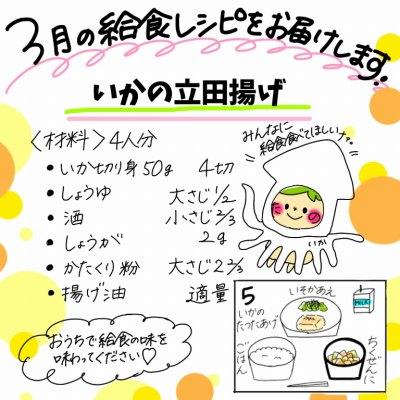 3月の給食レシピをお届けします!
いかの立田揚げ
<材料>4人分
• いか切り身50g 4切
• しょうゆ 大さじ1/2
• 酒 小さじ2/3
• しょうが 2g
• かたくり粉 大さじ2 2/3
• 揚げ油 適量
みんなに
給食食べてほしいナァ。
いか
おうちで給食の味を
味わってください♡
5
いそかあえ
MILK
いかの
たつたあげ
ごはん
ちくぜんに